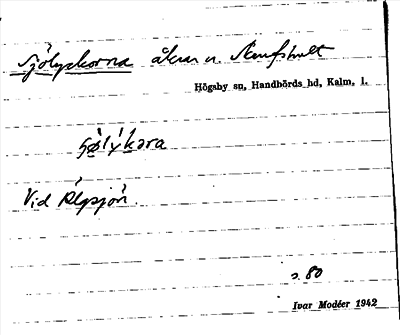 Sjölyckorna åkrar n. Skrufshult
Högsby sn, Handbörds hd, Kalm. l.
Vid Älpsjön.
s. 80
Ivar Modéer 1942